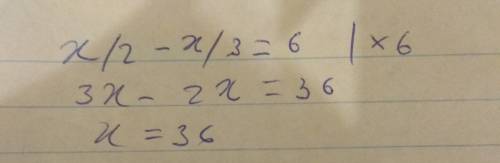 x/2 - x/3 = 6 | × 6
3x - 2x = 36
x = 36